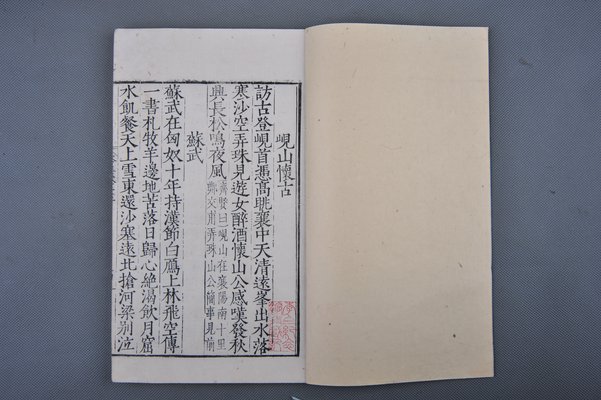 峴山懷古
訪古登峴首憑高眺襄中天清遠峯出水落
寒沙空弄珠見遊女醉酒懷山公感嘆發秋
興長松鳴夜風
齊賢曰峴山在襄陽南十里
鄭交甫弄珠山公簡事見前
蘇武
蘇武在匈奴十年持漢節白鴈上林飛空傳
一書札牧羊邊地苦落日歸心絶渴飲月窟
水飢餐天上雪東還沙塞遠北愴河梁別泣